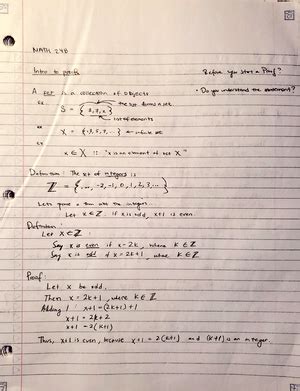 MATH 248
Intro to proofs
Before you start a Proof?
• Do you understand the statement?
A set is a collection of objects
ex
the set forms a set
S = { 2, 3, 4 }
list of elements
ex
X = { 3, 5, 7, ... } ← infinite set
ex
x ∈ X :: "x is an element of set X"
Definition: The set of integers is
ℤ = { ..., -2, -1, 0, 1, 2, 3 ... }
Lets prove a thm about the integers.
Let x ∈ ℤ. if x is odd, x+1 is even.
Definition:
Let x ∈ ℤ.
Say x is even if x = 2k, where k ∈ ℤ
Say x is odd if x = 2k+1, where k ∈ ℤ
Proof:
Let x be odd.
Then x = 2k+1, where k ∈ ℤ
Adding 1: x+1 = (2k+1) + 1
x+1 = 2k+2
x+1 = 2(k+1)
Thus, x+1 is even, because x+1 = 2(k+1) and (k+1) is an integer.